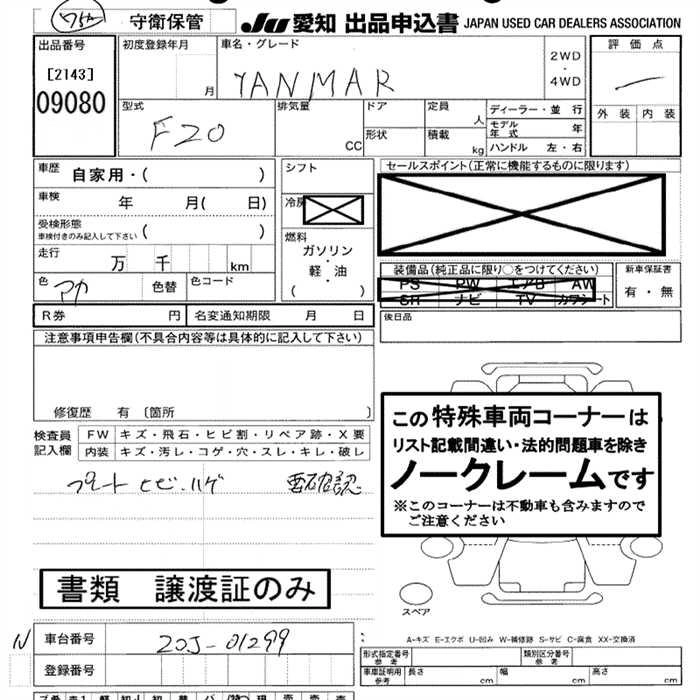 守衛保管 JU 愛知 出品申込書 JAPAN USED CAR DEALERS ASSOCIATION
出品番号 初度登録年月 車名・グレード 2WD ・ 4WD 評価点
[2143] 月 YANMAR
09080 外装 内装
型式 排気量 ドア 定員 人 ディーラー・並行
F20 モデル年式 年
CC 形状 積載 kg ハンドル 左・右
車歴 自家用・( ) シフト セールスポイント(正常に機能するものに限ります)
車検 年 月( 日) 冷房
受検形態 車検付きのみ記入して下さい ( ) 燃料
ガソリン・軽・油 ( )
走行 万 千 km 装備品(純品に限り○をつけてください) 新車保証書
色 アカ 色替 色コード PS PW エアB AW 有・無
SR ナビ TV カワシート
R券 円 名変通知期限 月 日 後日品
注意事項申告欄(不具合内容等は具体的に記入して下さい)
修復歴 有〔箇所 〕
この特殊車両コーナーは
リスト記載間違い・法的問題車を除き
ノークレームです
※このコーナーは不動車も含みますので
ご注意ください
検査員記入欄 FW キズ・飛石・ヒビ割・リペア跡・X要
内装 キズ・汚レ・コゲ・穴・スレ・キレ・破レ
プレート ヒビ・ハゲ 要確認
書類 譲渡証のみ
スペア
N 車台番号 20J-01299
A-キズ E-エクボ U-凹み W-補修跡 S-サビ C-腐食 XX-交換済
登録番号 形式指定番号 参考 類別区分番号 参考
車庫証明用 参考 長さ cm 幅 cm 高さ cm